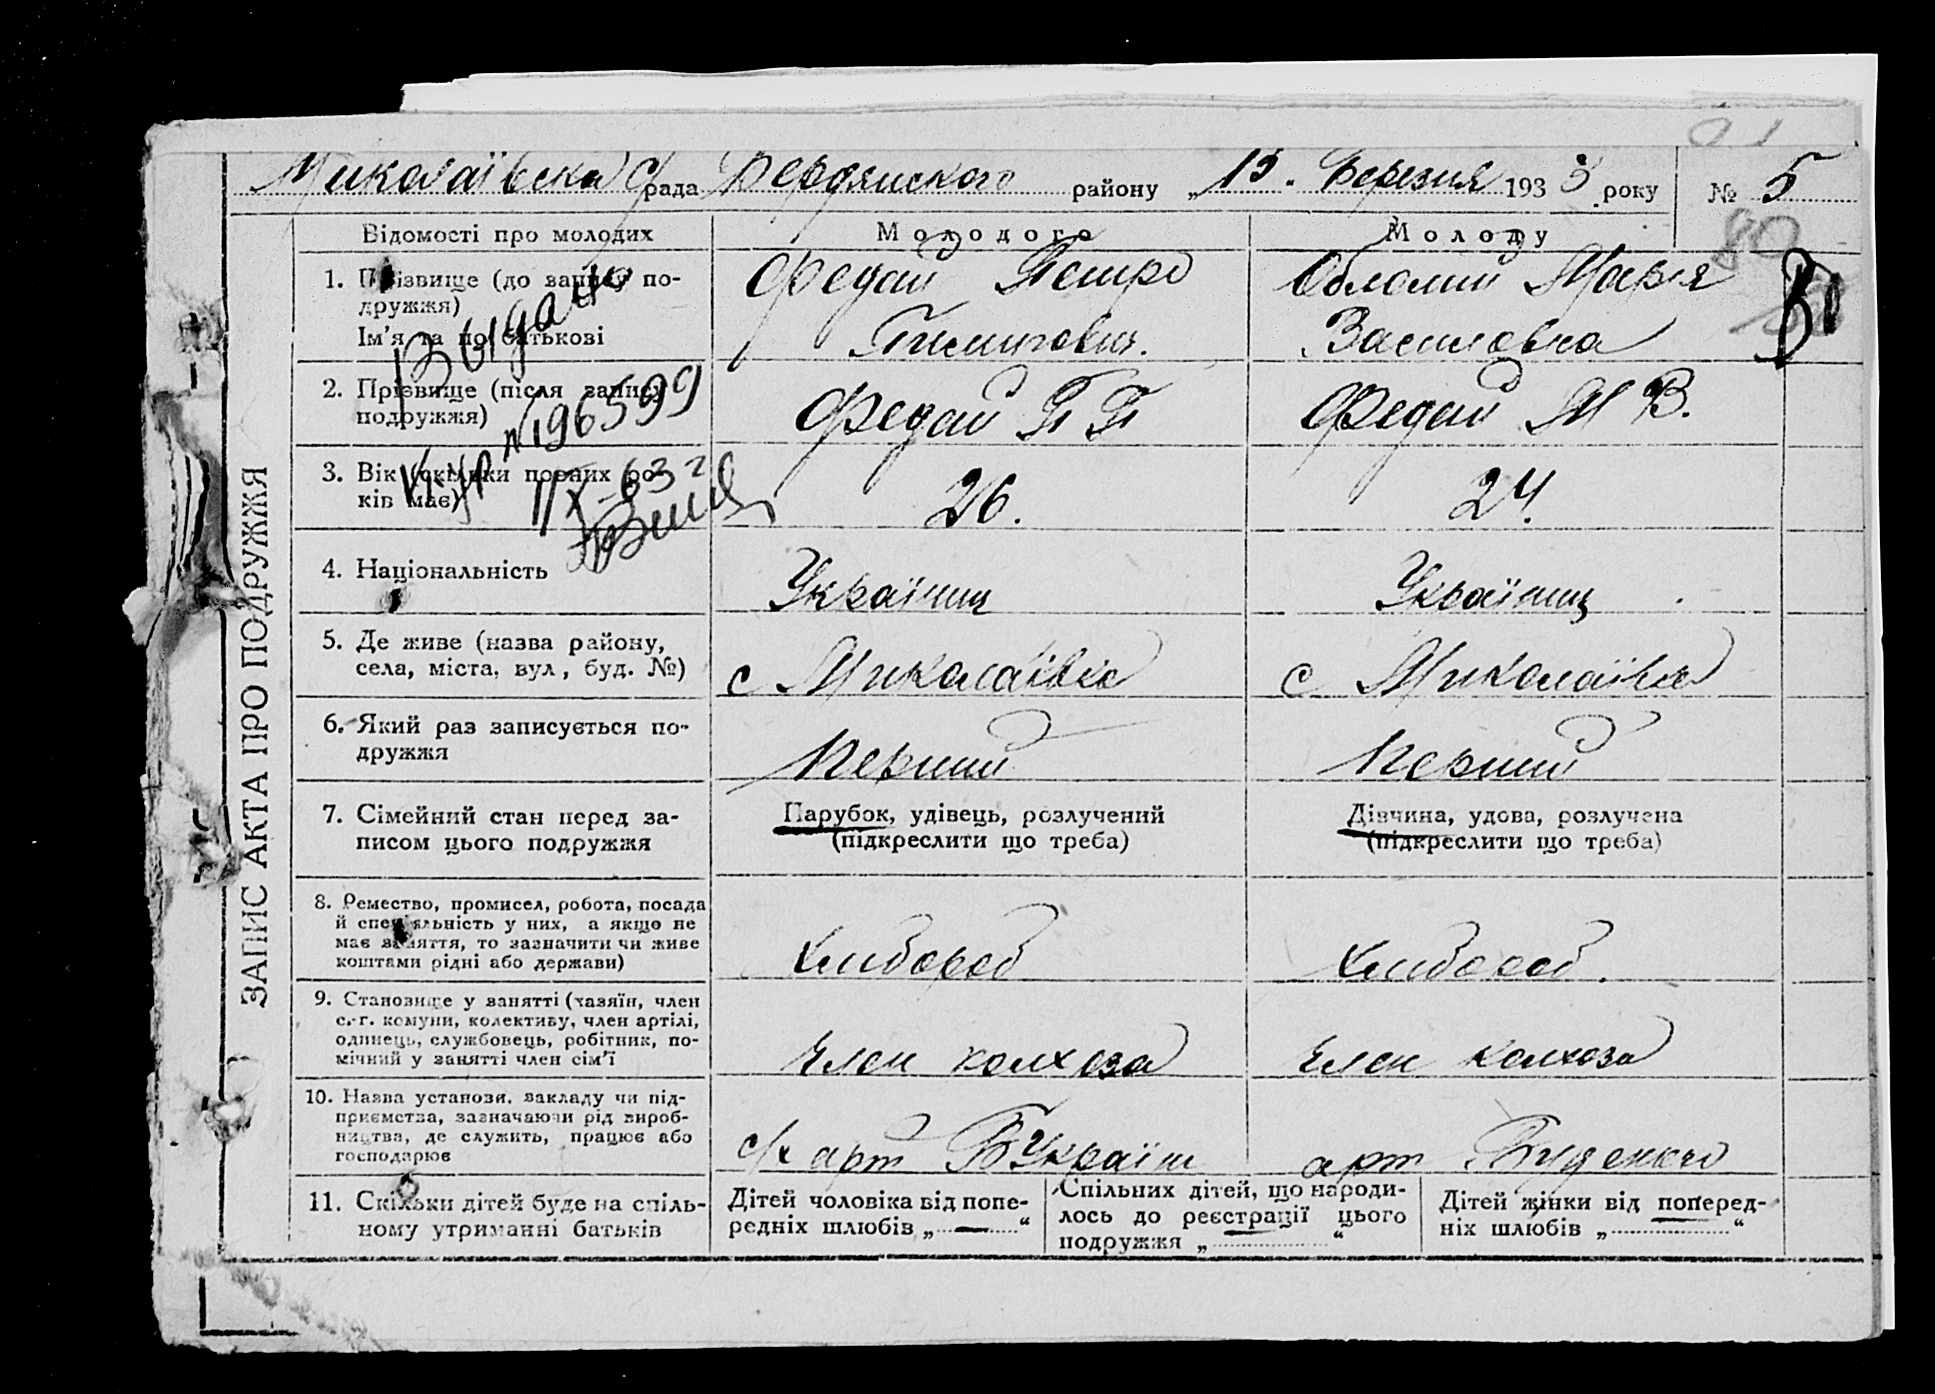 Миколаївська с/рада Бердянського району „ 15. Березня 1933 року № 5
80
ЗАПИС АКТА ПРО ПОДРУЖЖЯ
Відомості про молодих
Молодого
Молоду
1. Прізвище (до запису по-
дружжя)
Ім'я та по батькові
Федай Петро
Пилипович.
Обломий Марія
Василовна
2. Прізвище (після запису
подружжя)
Федай П П
Федай М В.
Выдано
№ 196599
IX-63 г
3. Вік (скільки повних ро-
ків має)
26.
24.
4. Національність
Україниц
Україниц
5. Де живе (назва району,
села, міста, вул, буд. №)
с Миколаївка
с Миколаївка
6. Який раз записується по-
дружжя
Перший
Перший
7. Сімейний стан перед за-
писом цього подружжя
Парубок, удівець, розлучений
(підкреслити що треба)
Дівчина, удова, розлучена
(підкреслити що треба)
8. Ремество, промисел, робота, посада
й спеціяльність у них, а якщо не
має заняття, то зазначити чи живе
коштами рідні або держави)
Хлибороб
Хлибороб.
9. Становище у занятті (хазяїн, член
с.-г. комуни, колективу, член артілі,
одинець, службовець, робітник, по-
мічний у занятті член сім'ї
член колхоза
член колхоза
10. Назва установи, закладу чи під-
приємства, зазначаючи рід вироб-
ництва, де служить, працює або
господарює
с/х арт
арт Буденого
11. Скільки дітей буде на спіль-
ному утриманні батьків
Дітей чоловіка від попе-
редніх шлюбів „ — “
Спільних дітей, що народи-
лось до реєстрації цього
подружжя „ — “
Дітей жінки від поперед-
ніх шлюбів „ — “